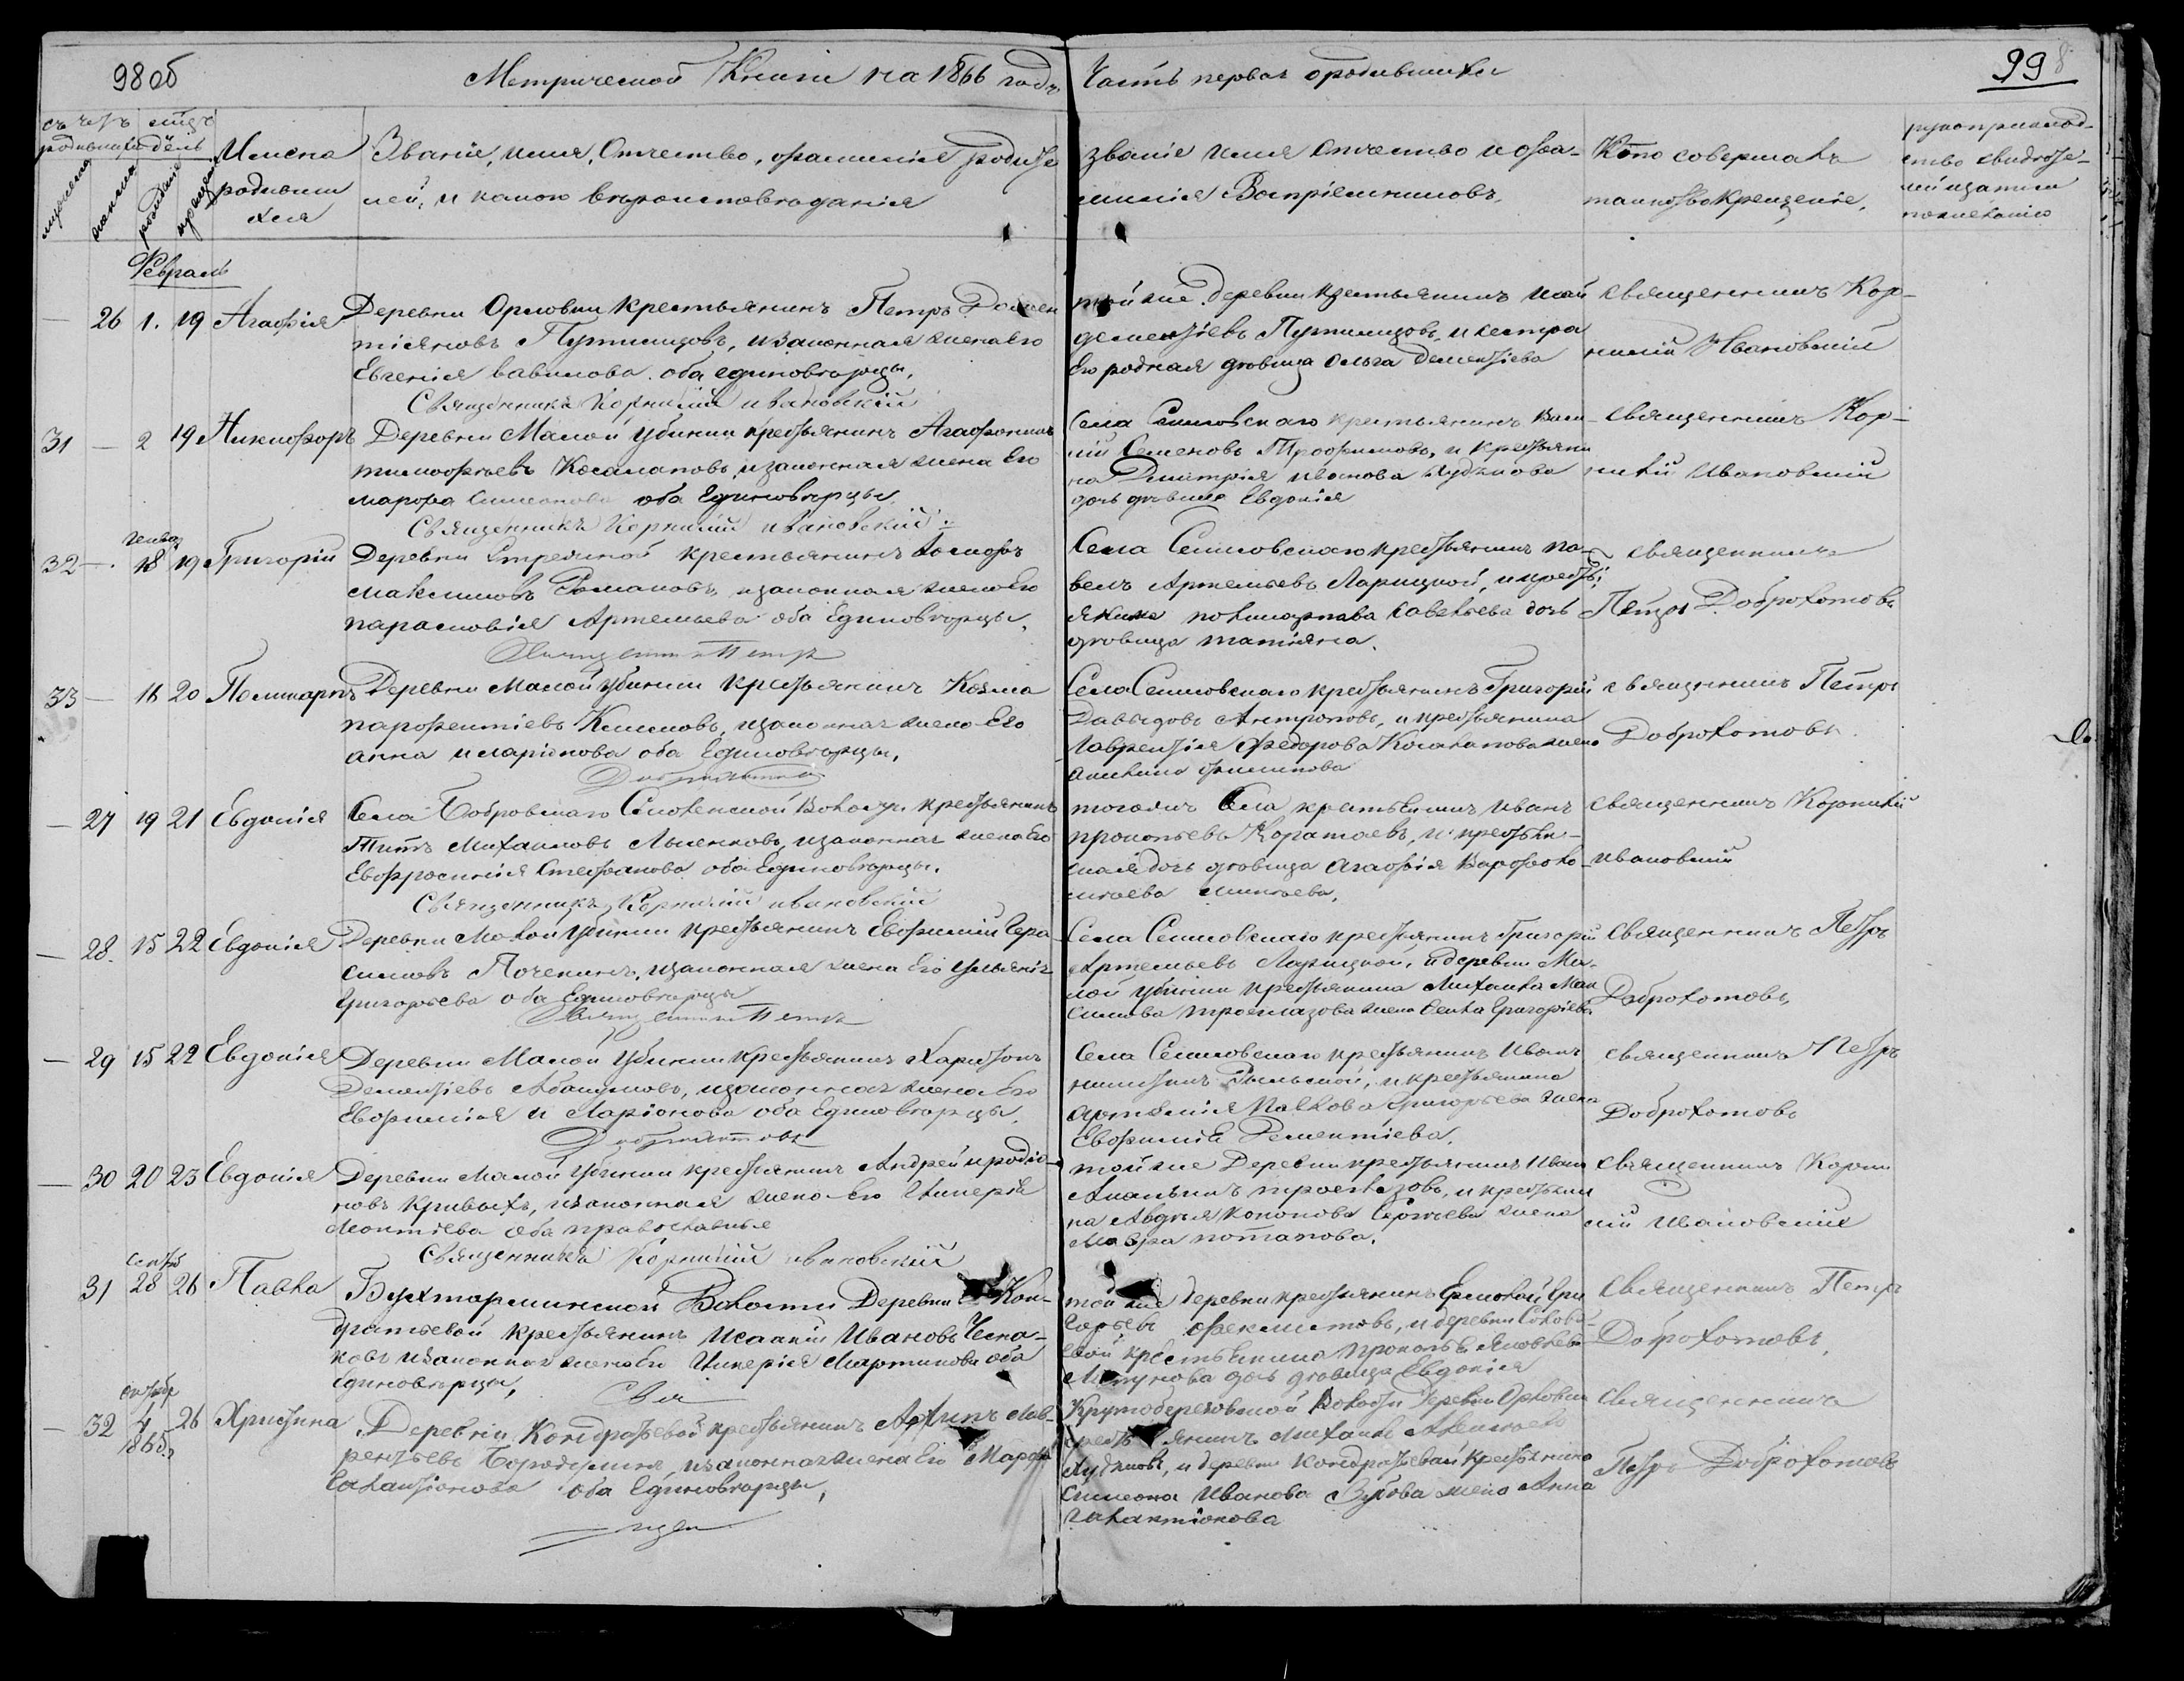 98 об
Метрической Книги на 1866 годъ
Часть первая о родившихся
99
родивших
мужеска
женска
рожденія
крещенія
Имена
родивши
хся
Званіе, имя, Отчество, фамилія родите
лей, и какого вѣроисповѣданія
званіе имя отчество и фа-
милія Воспріемниковъ.
Кто совершалъ
таинство крещеніе.
рукоприклад-
ство свидѣте-
лей записи
по желанію
Февраль
— 26 1. 19 Агафія
Деревни Орловки крестьянинъ Петръ Демен
тіяновъ Путинцовъ, и законная жена его
Евгенія Вавилова оба единовѣрцы,
Священникъ Корнилій Ивановскій
той же деревни крестьянинъ
дементіевъ Путинцовъ, и сестра
Его родная дѣвица Ольга Дементіева
священникъ Кор-
нилій Ивановскій
31 — 2 19 Никифоръ
Деревни Малой Убинки крестьянинъ Агафонникъ
тимофѣевъ Косалаповъ, и законная жена Его
марфа оба Единовѣрцы
Священникъ Корнилій Ивановскій
Села Секисовскаго крестьянинъ Васи
лій Семеновъ Трофимовъ, и крестьяни
на Димитрія иванова Худякова
дочь дѣвица Евдокія
священникъ Кор-
нилій Ивановскій
32 — генвар 18 19 Григорій
Деревни крестьянинъ Іосифъ
максимовъ Романовъ, и законная жена Его
парасковія Артемьева оба Единовѣрцы,
Священникъ Петръ
Села Секисовскаго крестьянинъ па-
велъ Артемьевъ Ларицкой, и кресть
янина поликарпава Савельева дочь
дѣвица татіяна.
священникъ
Петръ Доброхотовъ
33 — 18 20 Поликарпъ
Деревни Малой Убинки крестьянинъ Козма
парфентіевъ Климовъ, и законная жена Его
анна иларіонова оба Единовѣрцы,
Доброхотовъ
Села Секисовскаго крестьянинъ Григорій
Давыдовъ Антроповъ, и крестьянина
Лаврентія Федорова Косалапова жена
филипова
священникъ Петръ
Доброхотовъ
— 27 19 21 Евдокія
Села Бобровскаго Смоленской Волости крестьянинъ
Титъ Михаиловъ Лысенковъ, и законная жена Его
Евфросинія Стефанова оба Единовѣрцы.
Священникъ Корнилій Ивановскій
тогожъ Села крестьянинъ Иванъ
прокопьевъ Коратаевъ, и крестьян-
ская дочь дѣвица Агафія Варфоло-
мѣева
священникъ Корнилій
ивановскій
— 28. 15 22 Евдокія
Деревни Малой Убинки крестьянинъ Евфимій Гера
симовъ Поченинъ, и законная жена Его Ульянія
Григорьева оба Единовѣрцы
Священникъ Петръ
Села Секисовскаго крестьянинъ Григорій
Артемьевъ Ларицкой, и деревни Ма-
лой Убинки крестьянина Михаила Мак
симова троеглазова жена Григоріева
священникъ Петръ
Доброхотовъ
— 29 15 22 Евдокія
Деревни Малой Убинки крестьянинъ Харитонъ
Дементіевъ Абакумовъ, и законная жена Его
Евфимія Иларіонова оба Единовѣрцы.
Доброхотовъ
Села Секисовскаго крестьянинъ Иванъ
никитинъ Рыльской, и крестьянина
Павлова Григорьева жена
Евфимія Дементіева.
священникъ Петръ
Доброхотовъ
— 30 20 23 Евдокія
Деревни Малой Убинки крестьянинъ Андрей иродіо
новъ Кривыхъ, и законная жена Его Гликерія
Леонтіева Оба православные
Священникъ Корнилій Ивановскій
той же Деревни крестьянинъ Иванъ
Ананьинъ троеглазовъ, и крестьяни
на Авдея Кононова Сергѣева жена
Мавра потапова.
священникъ Корни
лій Ивановскій
31 сентяб 28 26 Павла
Бухтарминской Волости Деревни Кон-
дратьевой крестьянинъ Исаакій Ивановъ Чесно-
ковъ и законная жена Его Гликерія Мартинова оба
Единовѣрцы,
Свя
той же деревни крестьянинъ Ермолай Гри
горьевъ Феклистовъ, и деревни Солов-
евой крестьянина Прокопья Яковлева
дочь дѣвица Евдокія
священникъ Петръ
Доброхотовъ,
— 32 октябр 4 1865 26 Христина
Деревни Кондратьевой крестьянинъ Архипъ Лав-
рентьевъ Бородулинъ, и законная жена Его Марфа
Галактіонова оба Единовѣрцы,
Крутоберезовской Волости Деревни Орловки
крестьянинъ Михаилъ
Худяковъ, и деревни Кондратьевой крестьянина
Симеона Иванова Зубова жена Анна
Галактіонова
священникъ
Петръ Доброхотовъ